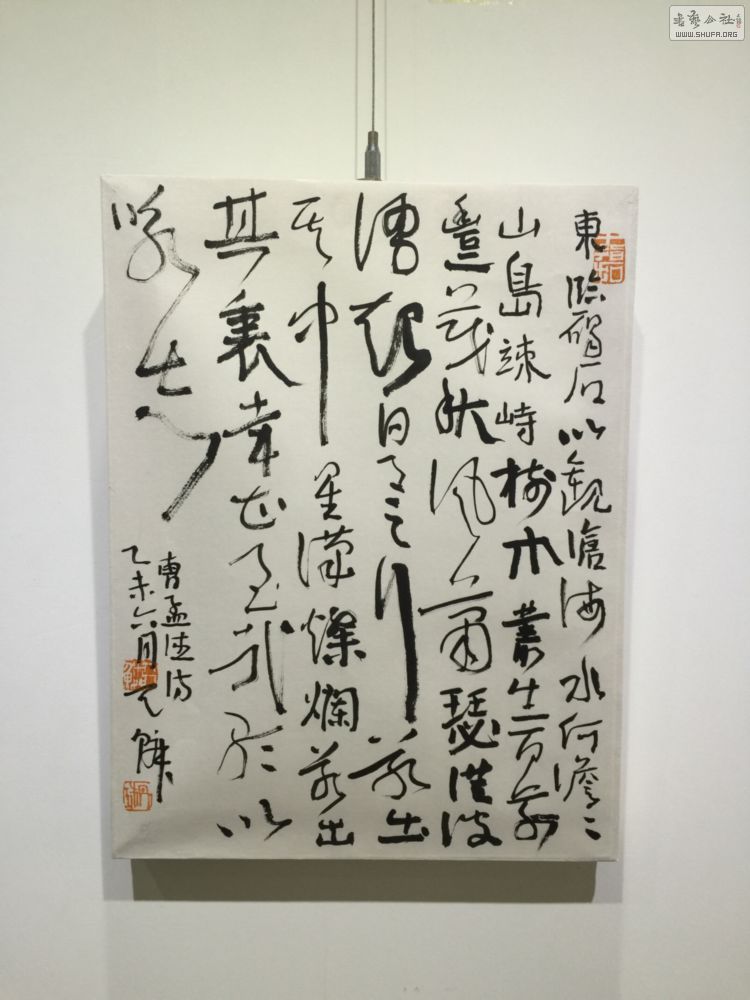 東臨碣石以觀滄海水何澹々
山島竦峙樹木叢生百草
豐茂秋風蕭瑟洪波
湧起日月之行若出
其中星漢燦爛若出
其裏幸甚至哉歌以
詠志
曹孟德詩
乙未六月
書藝公社
WWW.SHUFA.ORG